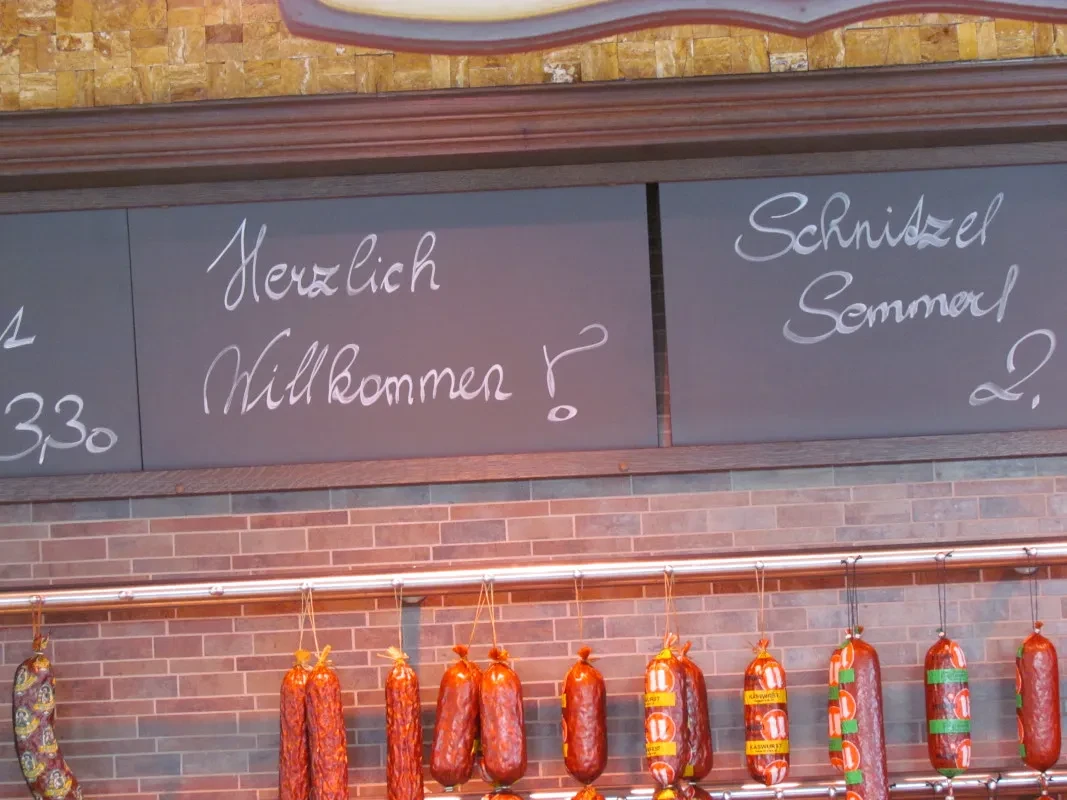 1
3,30
Herzlich
Willkommen !
Schnitzel
Semmerl
2.
KÄSWURST